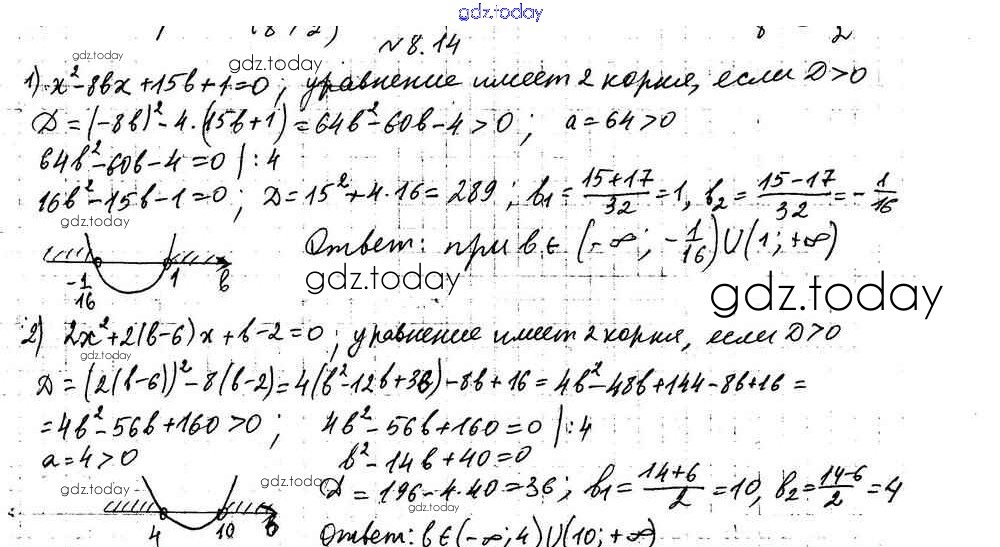 gdz.today
№ 8.14
1) x² - 8bx + 15b + 1 = 0 ; уравнение имеет 2 корня, если D > 0
D = (-8b)² - 4·(15b+1) = 64b² - 60b - 4 > 0 ; a = 64 > 0
64b² - 60b - 4 = 0 | : 4
16b² - 15b - 1 = 0 ; D = 15² + 4·16 = 289 ; b₁ = (15+17)/32 = 1, b₂ = (15-17)/32 = -1/16
-1/16 1 b
Ответ: при b ∈ (-∞; -1/16) U (1; +∞)
gdz.today
2) 2x² + 2(b-6)x + b - 2 = 0 ; уравнение имеет 2 корня, если D > 0
D = (2(b-6))² - 8(b-2) = 4(b² - 12b + 36) - 8b + 16 = 4b² - 48b + 144 - 8b + 16 =
= 4b² - 56b + 160 > 0 ; 4b² - 56b + 160 = 0 | : 4
a = 4 > 0 b² - 14b + 40 = 0
D = 196 - 4·40 = 36 ; b₁ = (14+6)/2 = 10, b₂ = (14-6)/2 = 4
4 10 b
Ответ: b ∈ (-∞; 4) U (10; +∞)